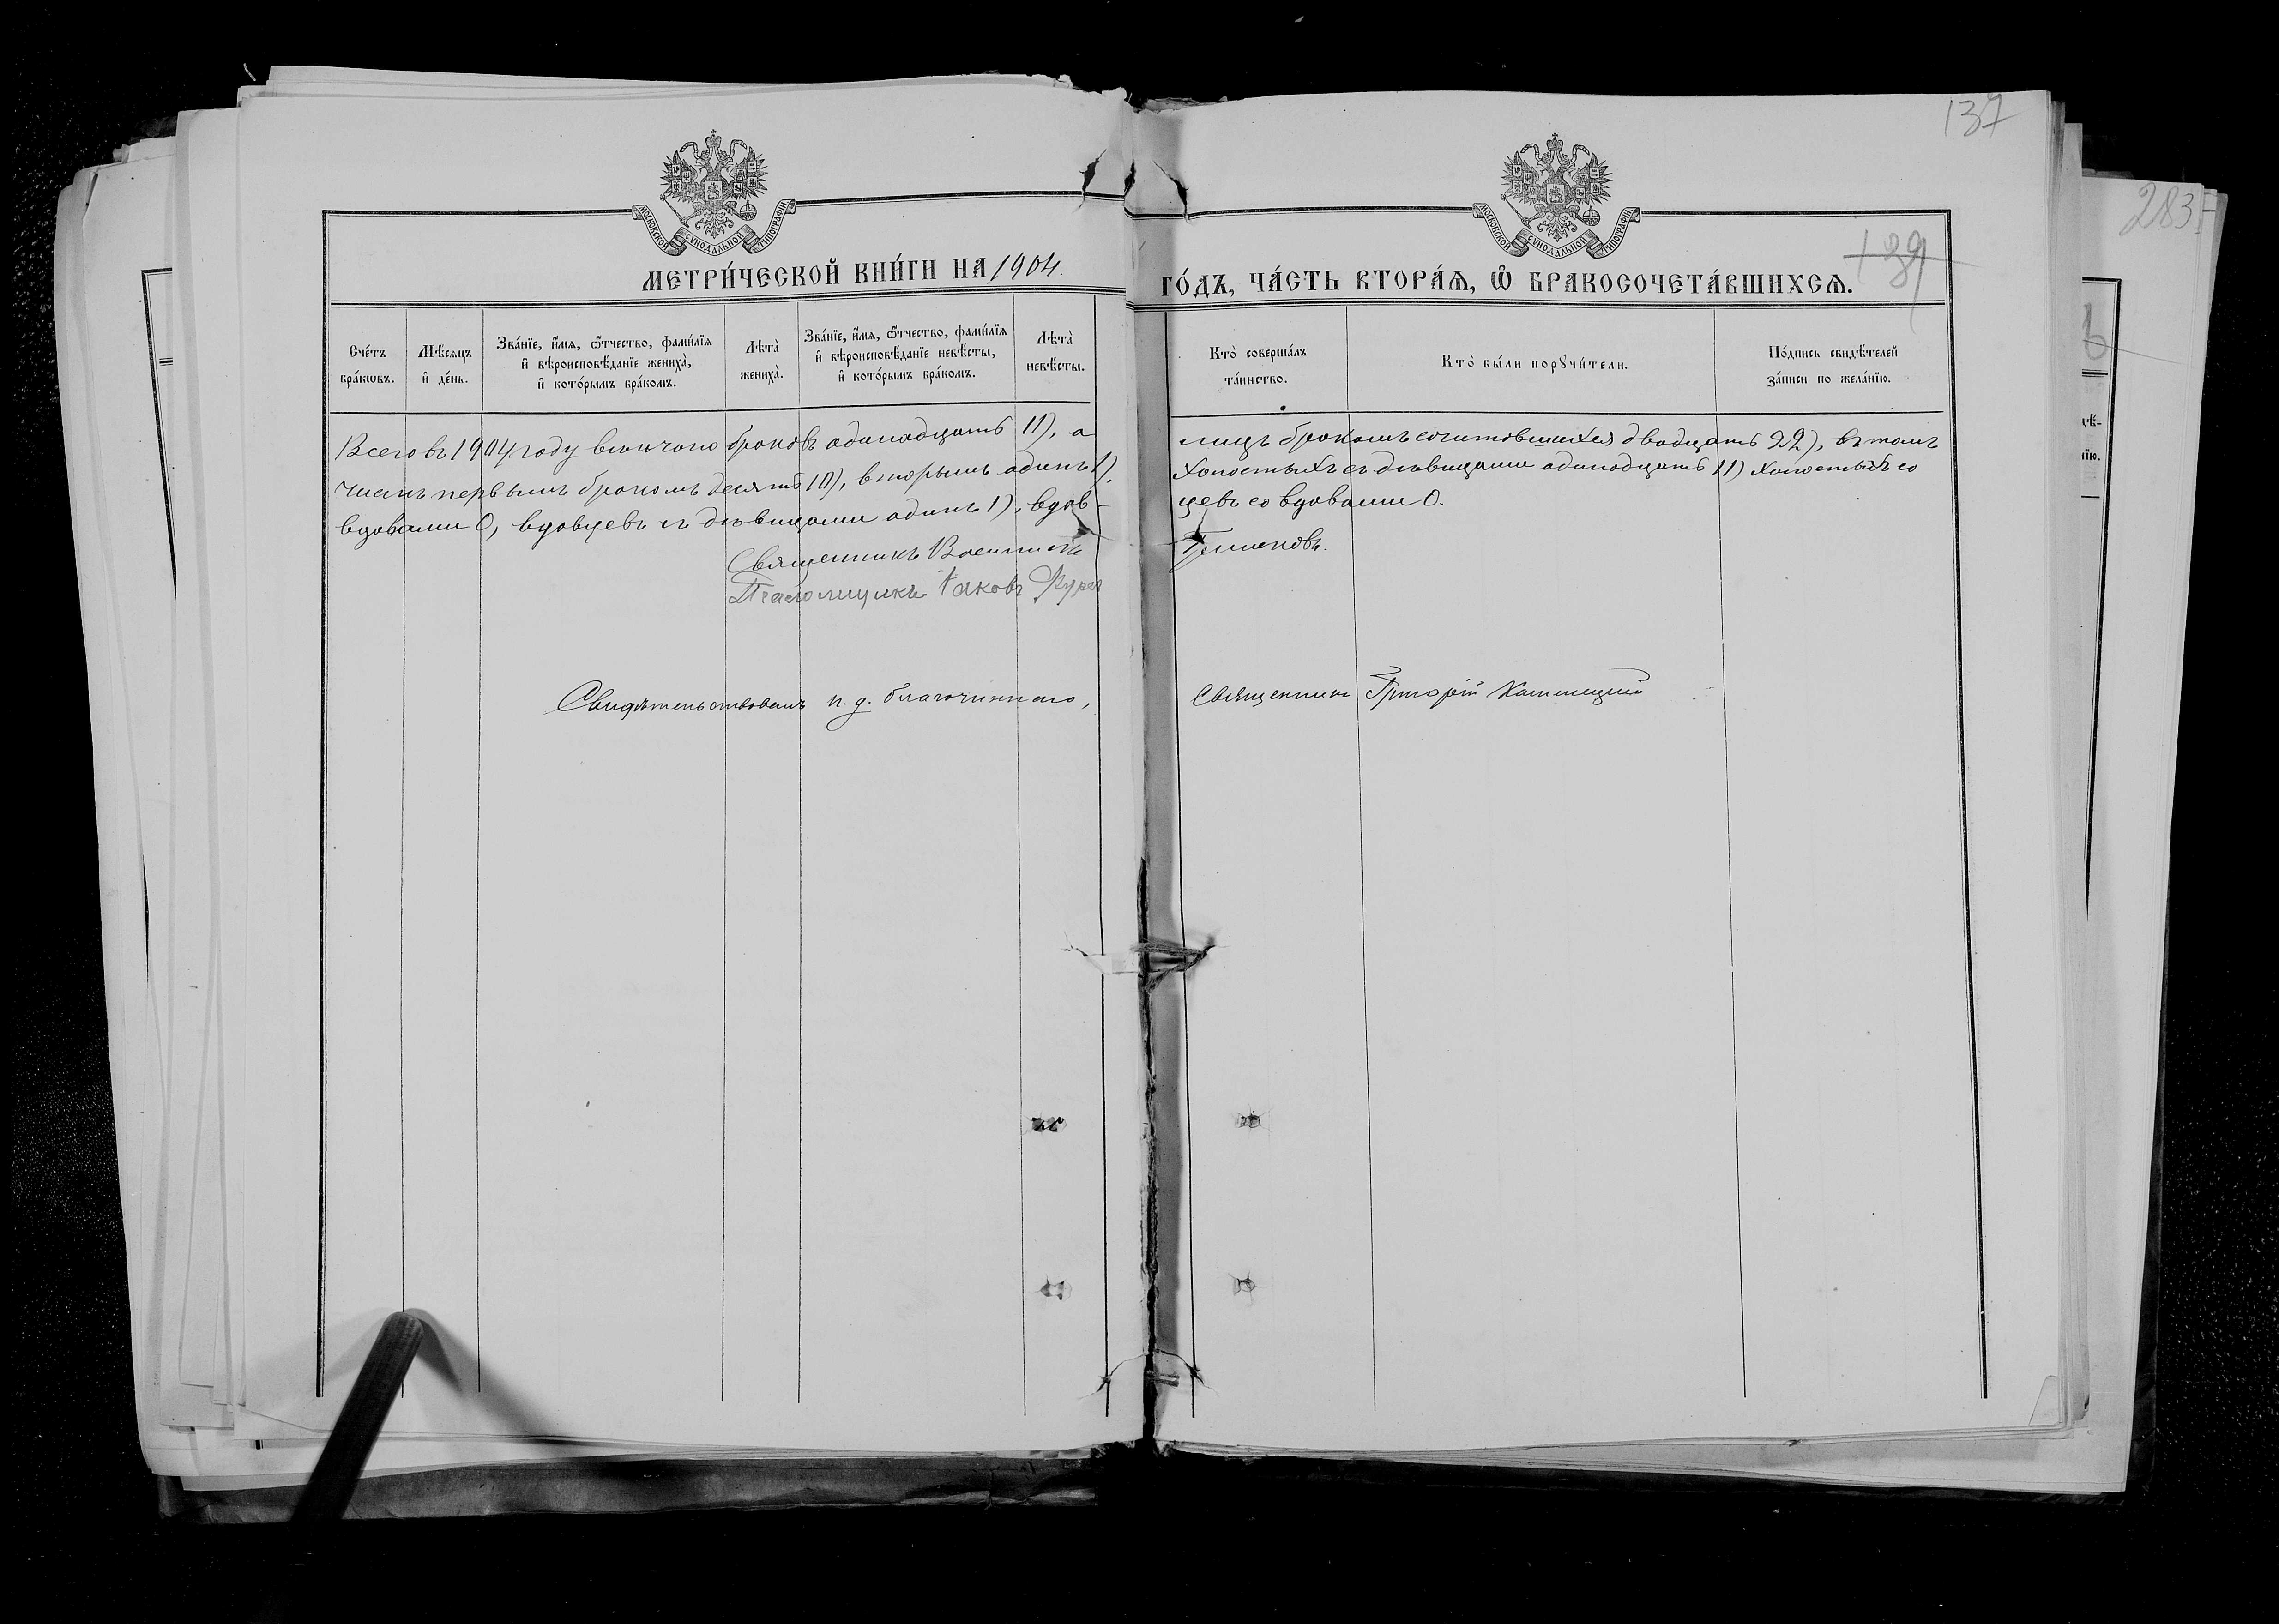 137
283
МОСКОВСКОЙ СѴНОДАЛЬНОЙ ТИПОГРАФІИ
МОСКОВСКОЙ СѴНОДАЛЬНОЙ ТИПОГРАФІИ
139
МЕТРИ́ЧЕСКОЙ КНИ́ГИ НА 1904.
ГО́ДЪ, ЧА́СТЬ ВТОРА́Ѧ, Ѽ БРАКОСОЧЕТА́ВШИХСѦ.
Сче́тъ бра́кѡвъ.
Мѣ́сяцъ и҆ де́нь.
Зва́нїе, и҆́мя, ѻ҆́тчество, фами́лїя и҆ вѣроисповѣ́данїе жениха̀, и҆ кото́рымъ бра́комъ.
Лѣта̀ жениха̀.
Зва́нїе, и҆́мя, ѻ҆́тчество, фами́лїя и҆ вѣроисповѣ́данїе невѣ́сты, и҆ кото́рымъ бра́комъ.
Лѣта̀ невѣ́сты.
Кто̀ соверша́лъ та́инство.
Кто̀ бы́ли порꙋчи́тели.
По́дпись свидѣ́телей за́писи по жела́нїю.
Всего въ 1904 году венчано браковъ одинадцать 11), а
лицъ бракомъ сочитовшихся двадцать 22), въ томъ
числѣ первымъ бракомъ десять 10), вторымъ одинъ 1),
холостыхъ съ дѣвицами одинадцать 11) холостыхъ со
вдовами 0, вдовцевъ съ дѣвицами одинъ 1), вдов-
цевъ со вдовами 0.
Священникъ
Псаломщикъ Іаковъ
Свидѣтельствовалъ и. д. благочиннаго,
Священникъ Григорій